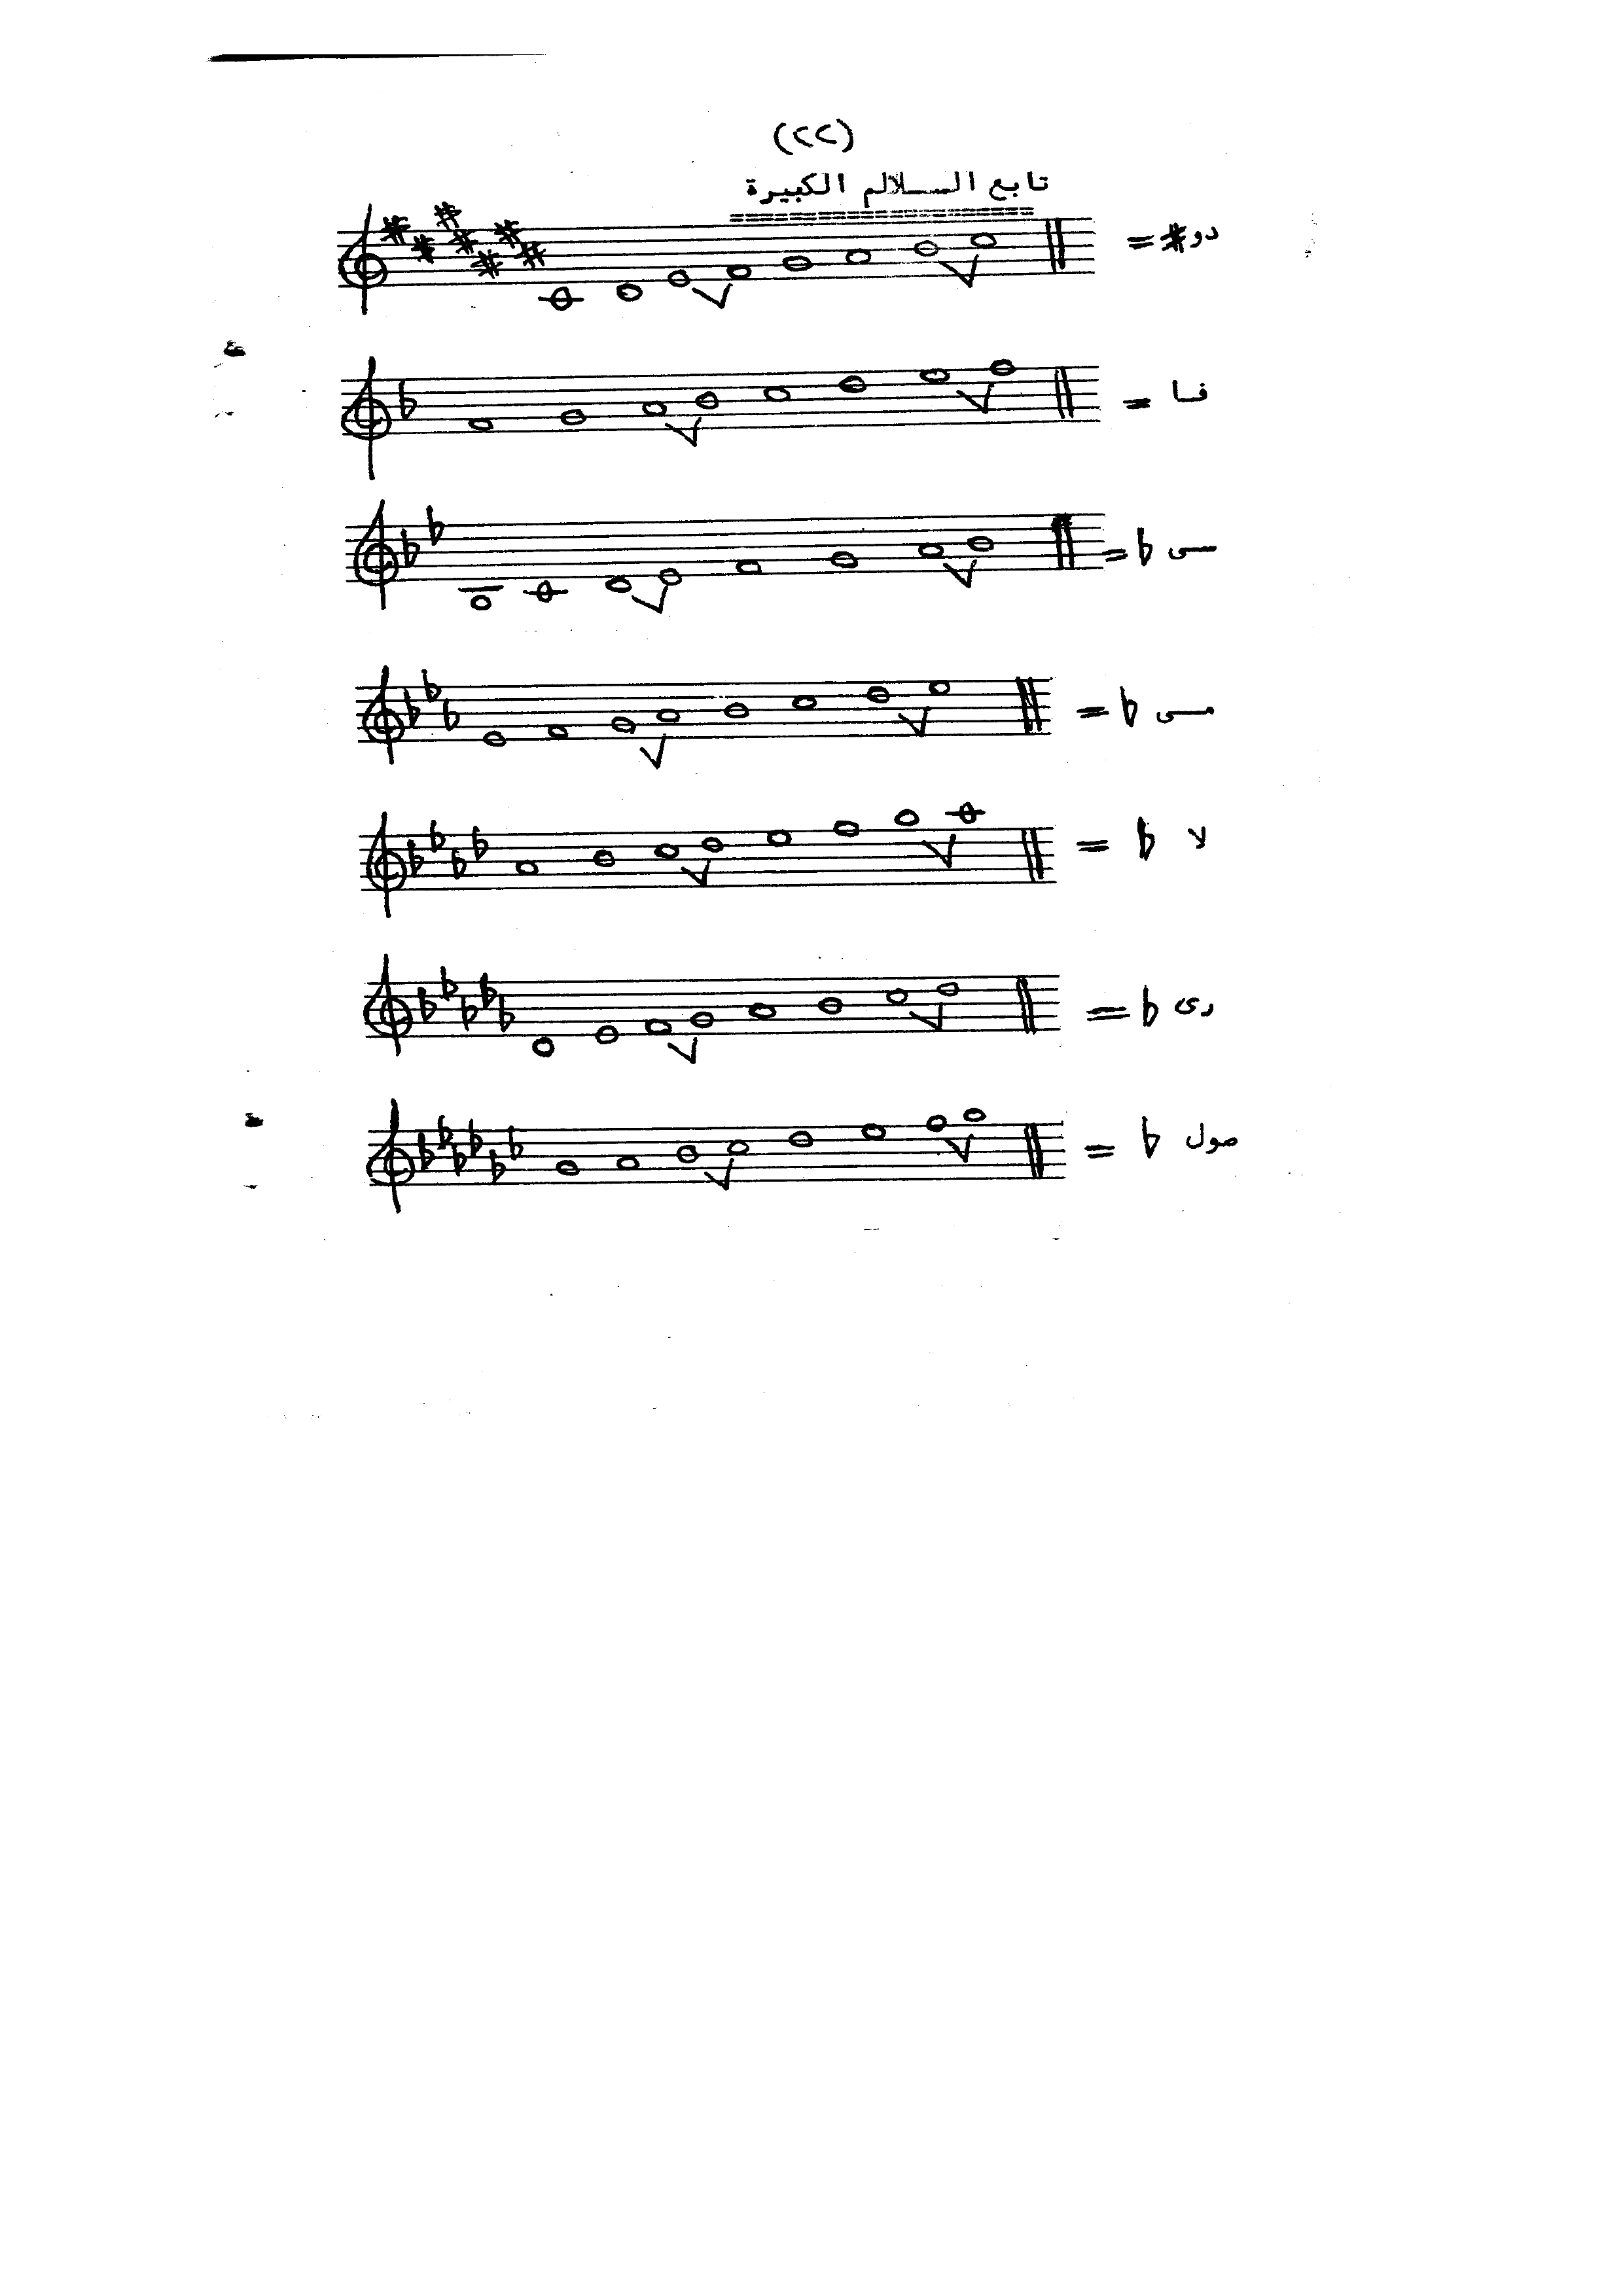 (٢٢)
تابع السلالم الكبيرة
دو# =
فا =
سى b =
مى b =
لا b =
رى b =
صول b =